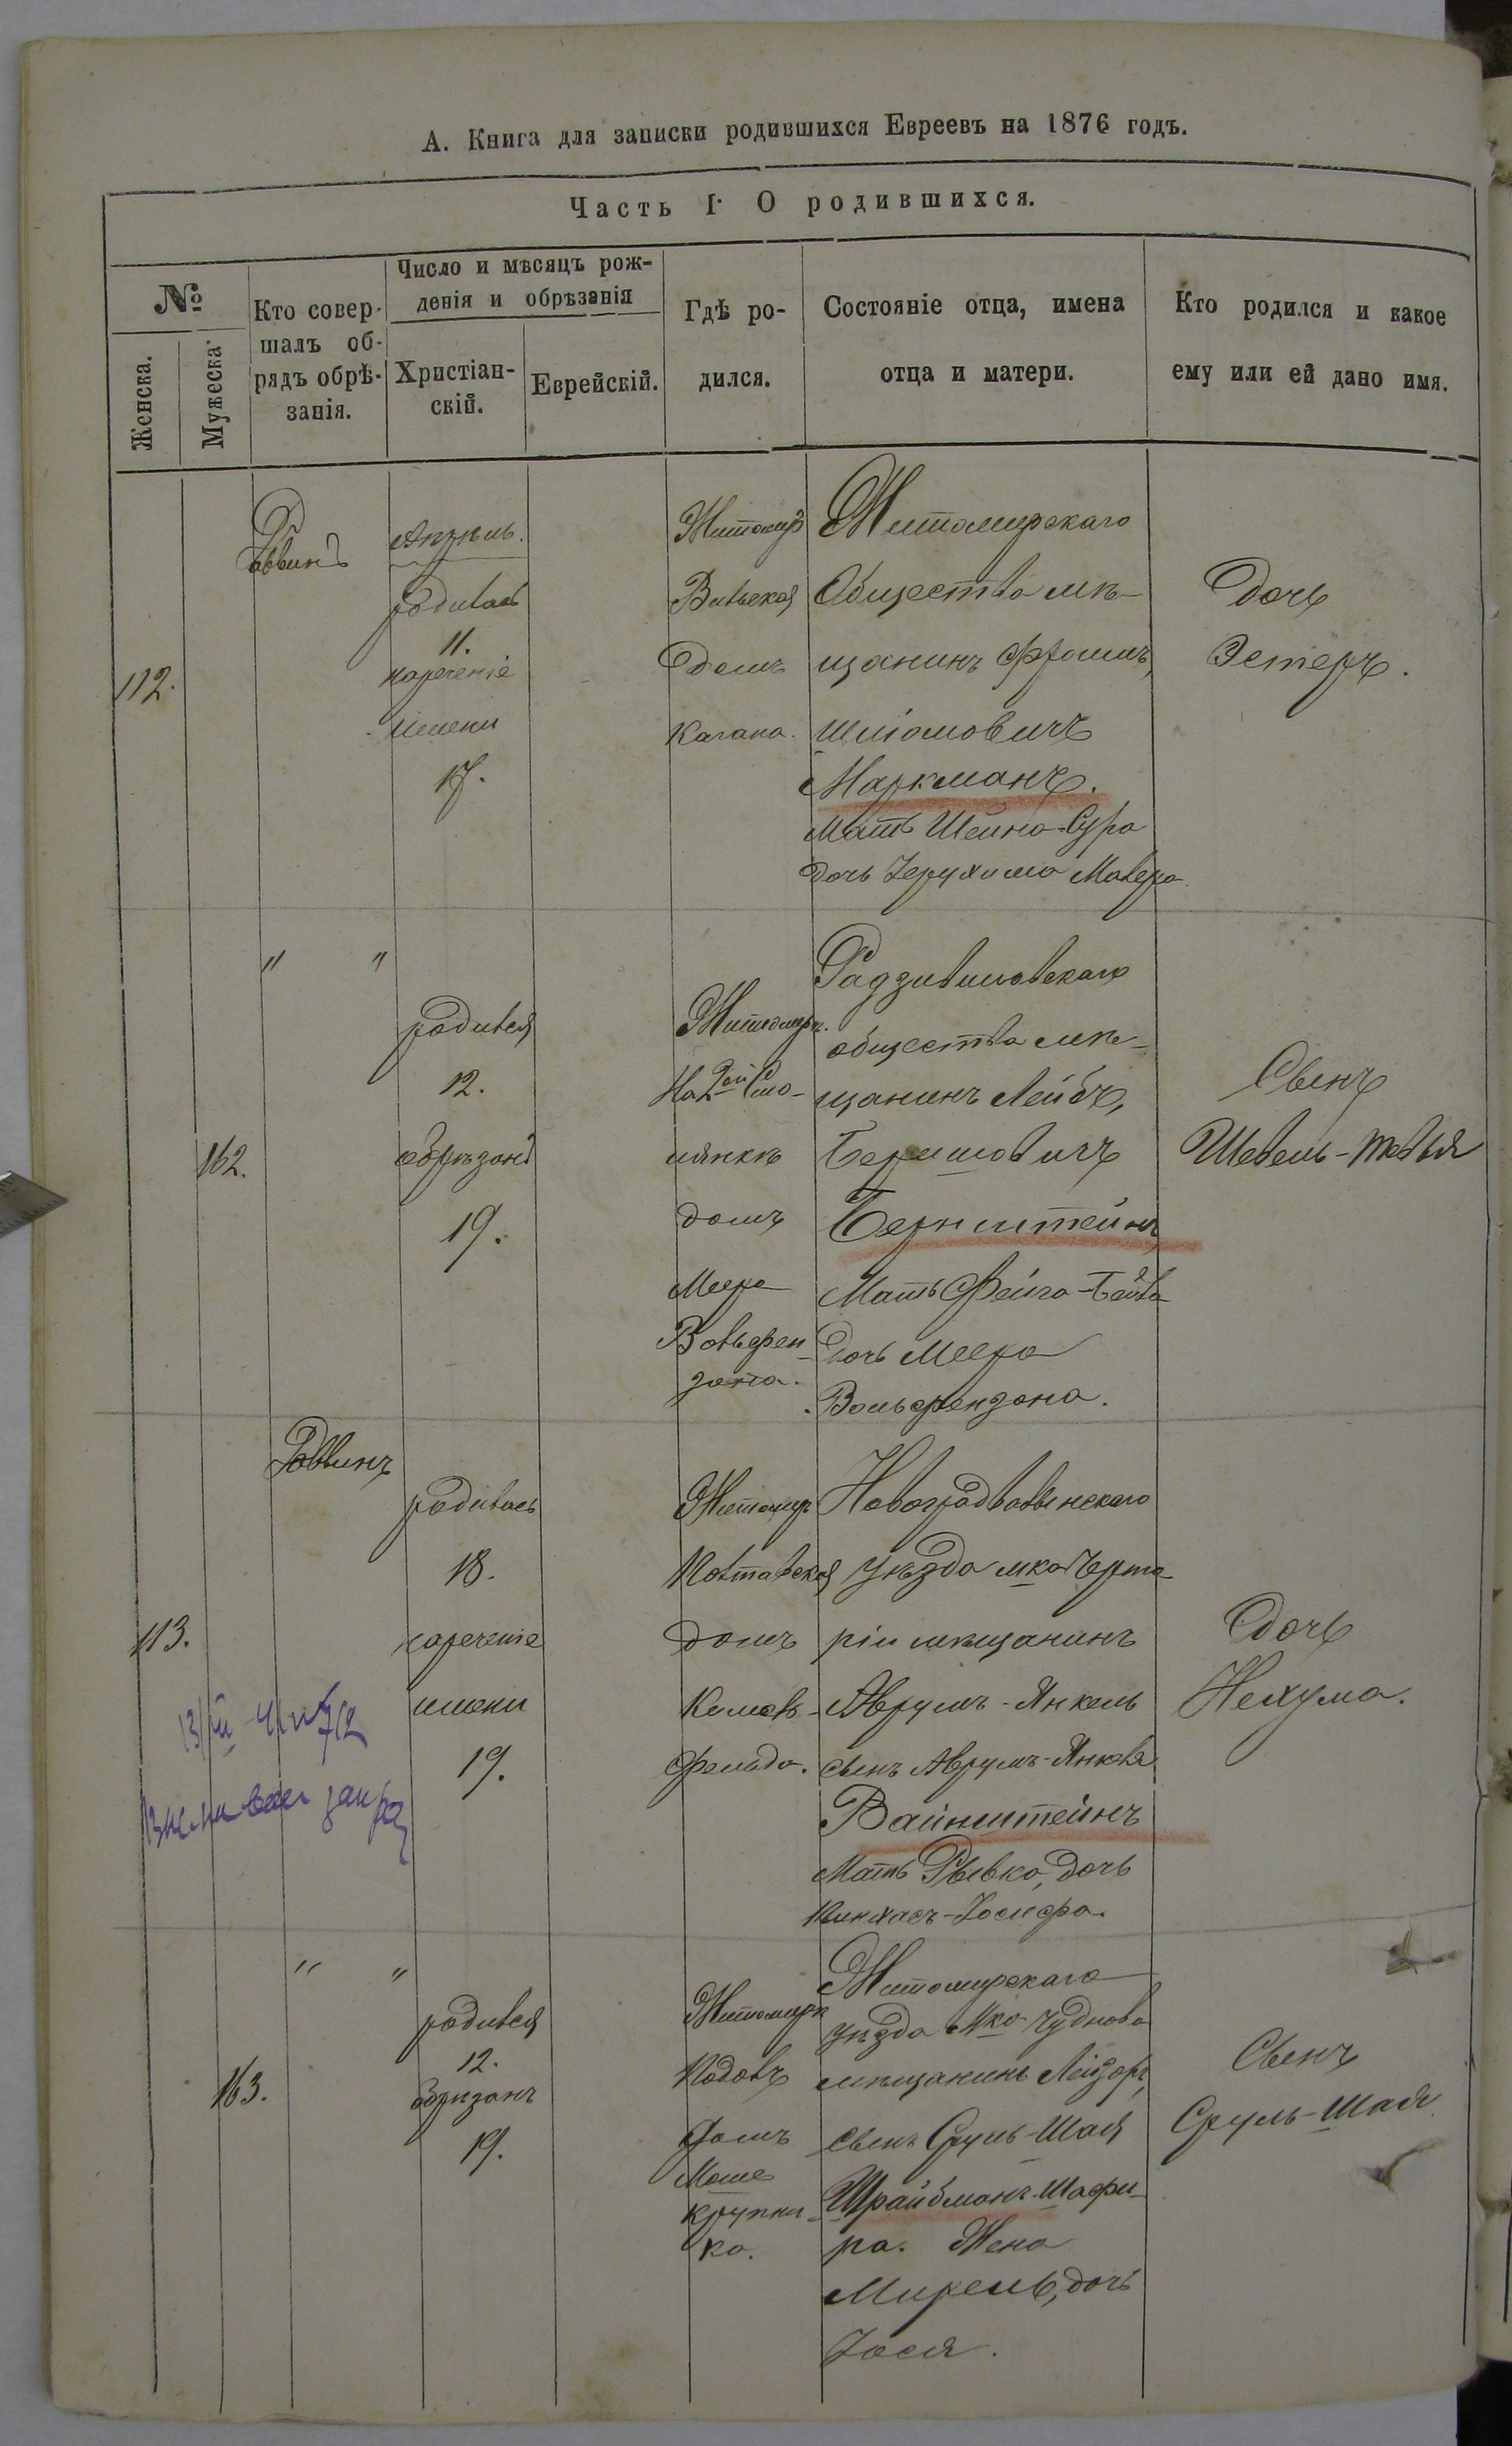 А. Книга для записки родившихся Евреевъ на 1876 годъ.
Часть I. О родившихся.
№
Женска.
Мужеска
Кто совер-
шалъ об-
рядъ обрѣ-
занія.
Число и мѣсяцъ рож-
денія и обрѣзанія
Христіан-
скій.
Еврейскій.
Гдѣ ро-
дился.
Состояніе отца, имена
отца и матери.
Кто родился и какое
ему или ей дано имя.
112.
Раввинъ
Апрѣль.
родилась
11.
нареченіе
имени
17.
Житомиръ
Вильская
домъ
Кагана.
Житомирскаго
Общества мѣ-
щанинъ Фроимъ,
Шліомовичъ
Маркманъ.
Мать Шейна-Сура
дочь Іерухима Малера
Дочь
Эстеръ.
162.
" "
родился
12.
обрѣзанъ
19.
Житомиръ.
На 2ой Смо-
лянкѣ
домъ
Меера
Вольфен-
зона.
Радзивиловскаго
общества мѣ-
щанинъ Лейбъ,
Беришовичъ
Бернштейнъ
Мать Фейга-Бейла
Дочь Меера
Вольфензона.
Сынъ
Шевель-Тевья
113.
Раввинъ
родилась
18.
нареченіе
имени
19.
Житомиръ
Полтавская
домъ
фельда.
Новоградволынскаго
Уѣзда мка Черто-
ріи мѣщанинъ
Аврумъ-Янкель
сынъ Аврумъ-Янкеля
Вайнштейнъ
Мать Рывка, дочь
Пинхасъ-Іосифа.
Дочь
Нехума.
163.
" "
родился
12.
обрѣзанъ
19.
Житомиръ
Подолъ
домъ
Моше
Крупни-
ка.
Житомирскаго
уѣзда Мка Чуднова
мѣщанинъ Лейзоръ,
сынъ Сруль-Шая
Шрайбманъ-Шафи-
ра. Жена
Мирель, дочь
Іося.
Сынъ
Сруль-Шая